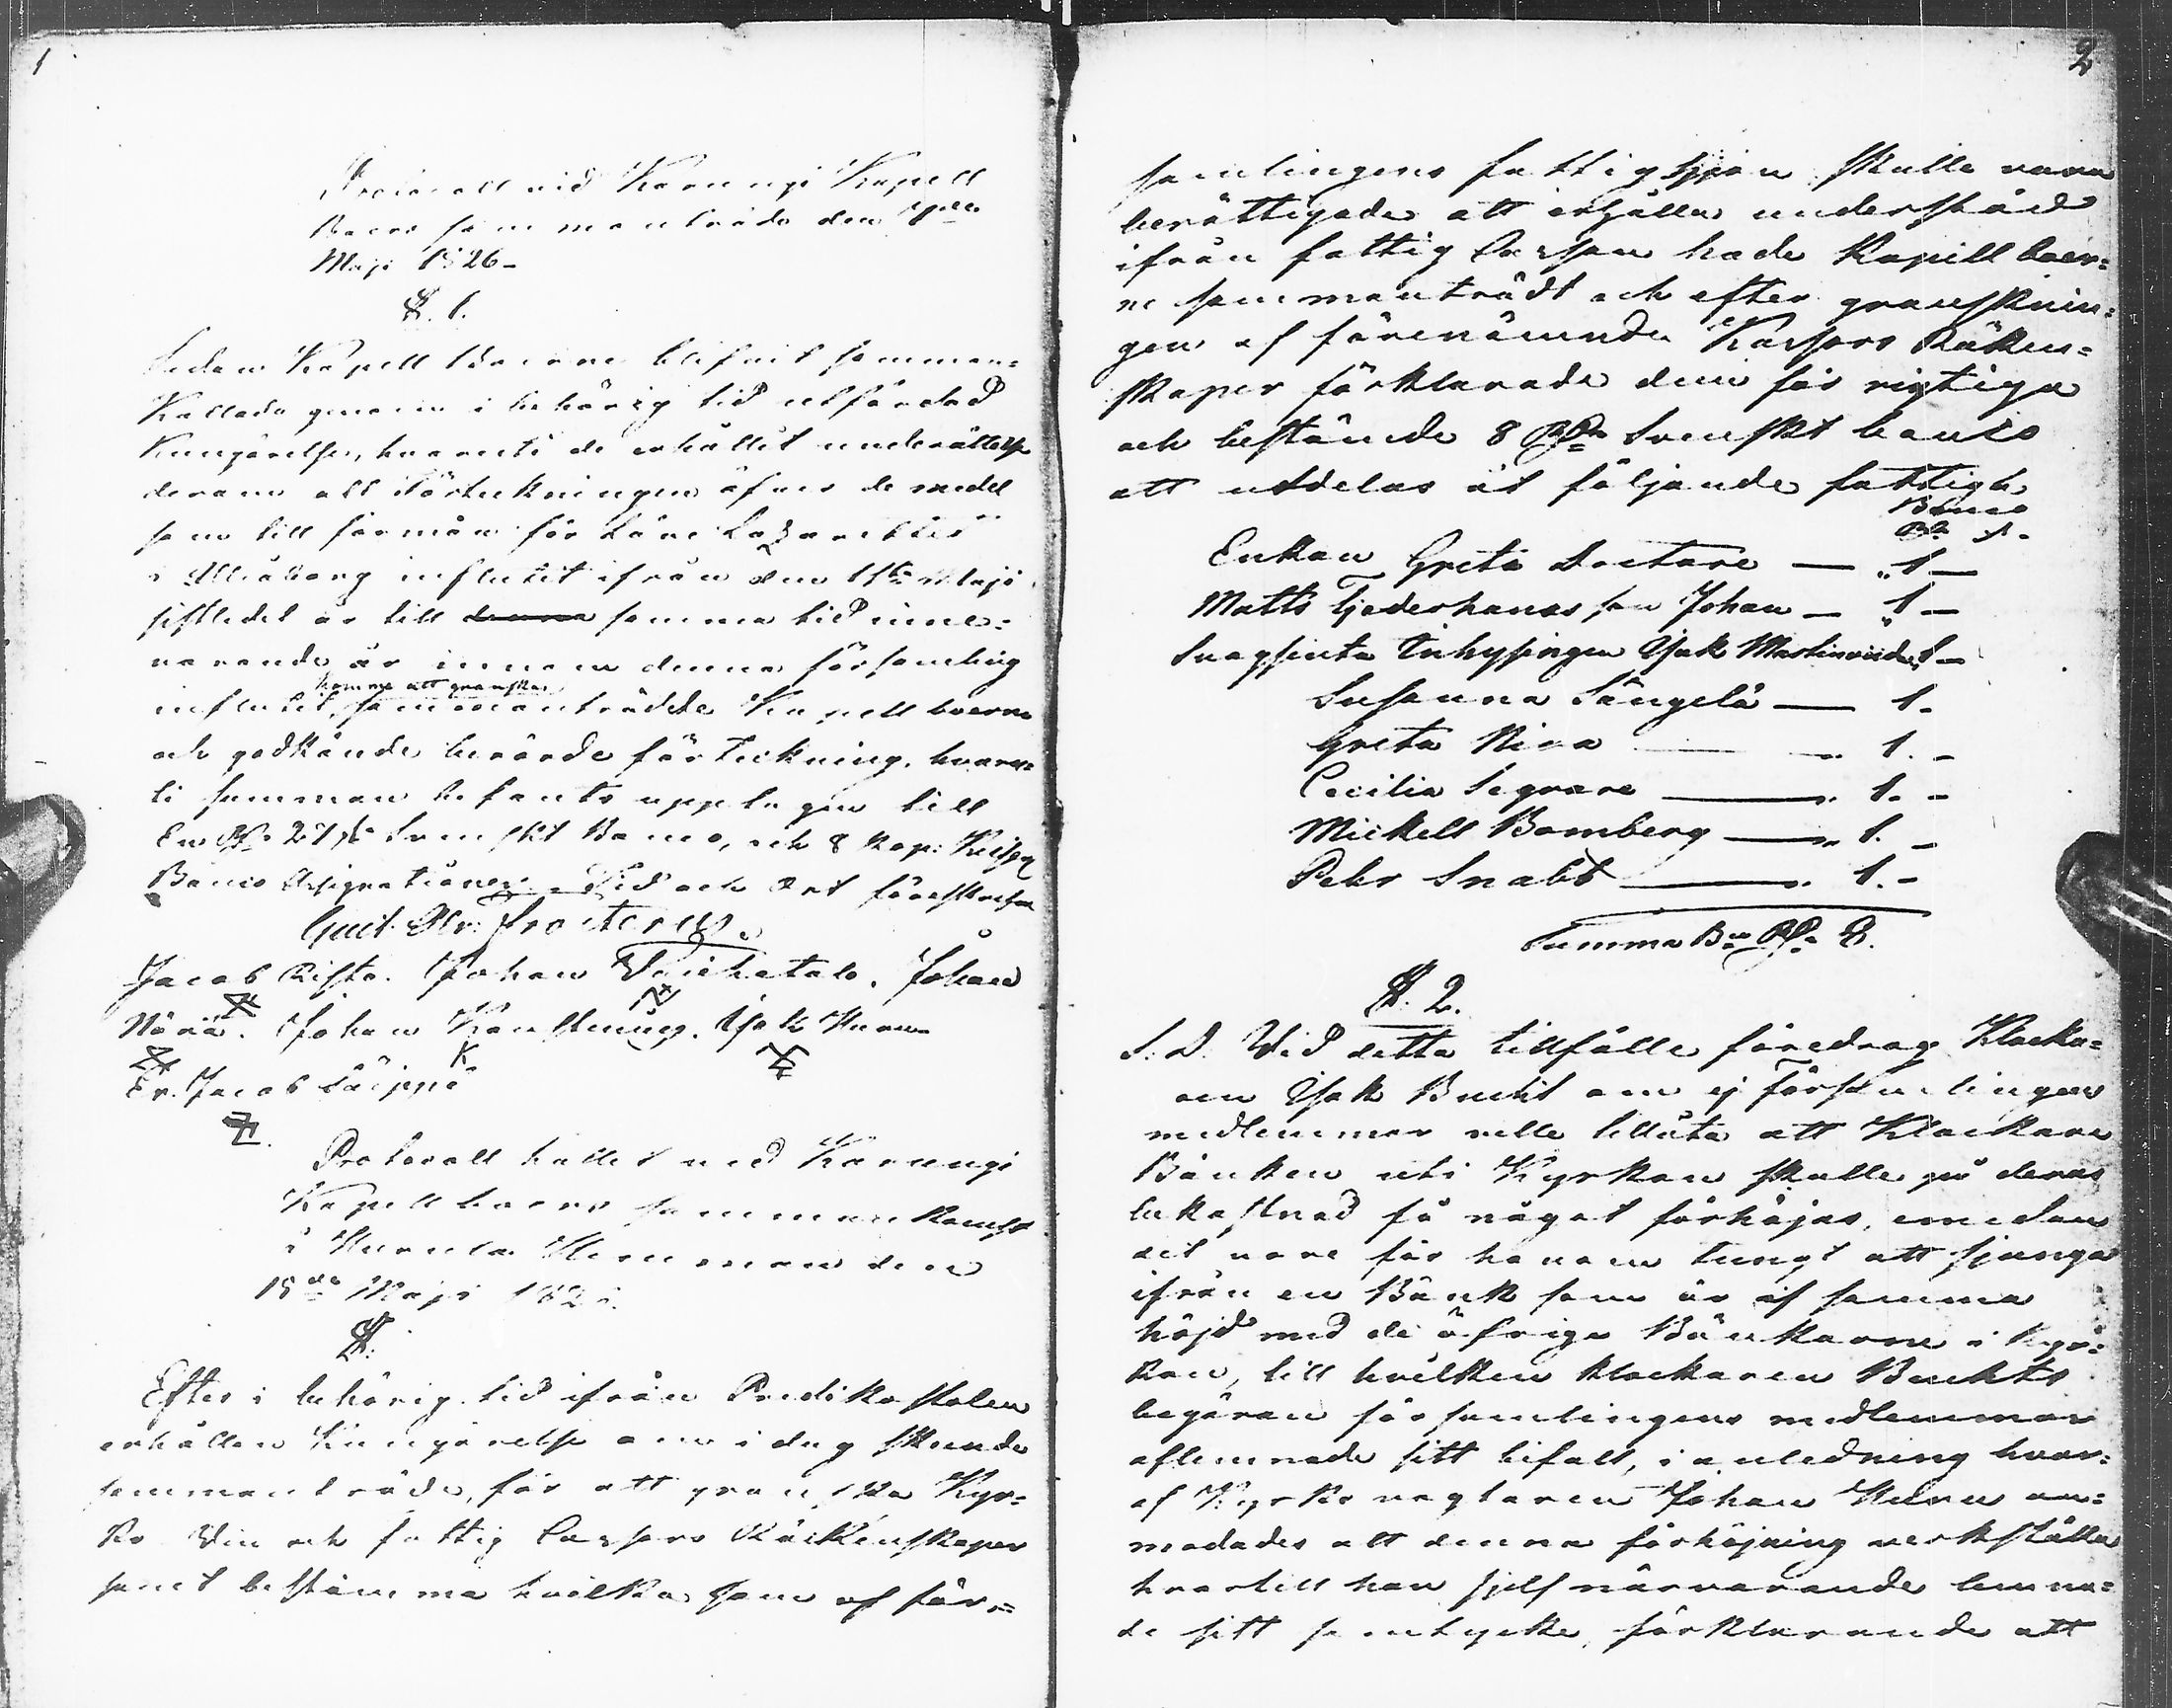 1
Protocoll vid Karungi Kapell
Boers sammanträde den
Maji 1826-
§. 1.
Sedan Kapell Boerne blifvit samman=
Kallade genom i behörig tid utfärdad
Kungörelse, hvaruti de erhållit underrättelse
derom att Förteckningen öfver de medel
som till förmån för Läne Lazarettet
i Uleåborg influtit ifrån den 1sta Maji
sistledet år till samma tid inne=
varande år innom denna församling
komma att granskas
influtit, sammanträdde Kapell boerne
och godkände berörde förteckning, hvaru=
ti summan befants upptagen till
En Rd 27 s Svenskt Banco, och 8 kop:
Banco Assignationer. Tid och Ort föreskrefne
Jacob Johan Johan
Johan Isak
Er. Jacob
Protocoll hållet vid Karungi
Kapellboers sammankomst
i Hemman den
18de Maji 182
§.
Efter i behörig tid ifrån Predikostolen
erhållen Kungörelse om i dag skeende
sammanträde, för att granska Kyr=
ko Vin och fattig Cassors Räkenskaper
samt bestämma hvilka som af för=
2
samlingens fattighjon skulle vara
berättigade att erhålla understöd
ifrån fattig Cassan hade Kapell boer=
ne sammanträdt och efter gransknin=
gen af förenämnde Kassors Räken=
skaper förklarade dem för rigtiga
och bestämde 8 Rd Svenskt banco
att utdelas åt följande fattiga
Banco
Rd s.
Enkan Greta — 1 —
Matts son Johan — 1 —
Isak 1 —
Susanna Sängelä — 1.
Greta Niva — 1. -
Cecilia — 1. -
Mickell Bomberg — 1. -
Pehr Snabb — 1. -
Summa Bco Rd 8.
§. 2.
S. D. Vid detta tillfälle föredrog Klocka=
ren Isak Bucht om ej Församlingens
medlemmar ville tillåta att Klockare
Bänken uti Kyrkan skulle på deras
bekostnad få något förhöjas, emedan
det vore för honom tungt att sjunga
ifrån en Bänk som är af samma
höjd med de öfriga Bänkarne i Kyr=
kan, till hvilken klockaren Buchts
begäran församlingens medlemmar
aflemnade sitt bifall, i anledning hvar=
af Kyrko vagtaren Johan an=
modades att denna förhöjning verkställa
hvartill han sjelf närvarande lemna=
de sitt samtycke, förklarande att